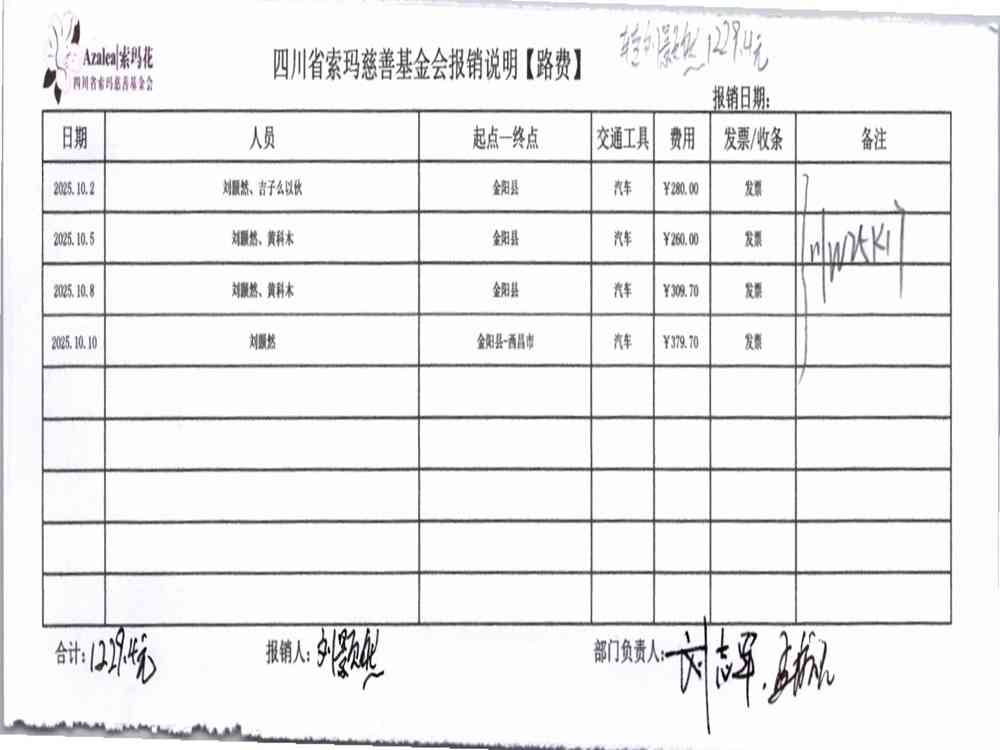 Azalea|索玛花
四川省索玛慈善基金会
四川省索玛慈善基金会报销说明【路费】
1229.4元
报销日期:
日期 人员 起点—终点 交通工具 费用 发票/收条 备注
2025.10.2 刘颢然、吉子么以伙 金阳县 汽车 ¥280.00 发票
2025.10.5 刘颢然、黄科木 金阳县 汽车 ¥260.00 发票
2025.10.8 刘颢然、黄科木 金阳县 汽车 ¥309.70 发票
2025.10.10 刘颢然 金阳县-西昌市 汽车 ¥379.70 发票
合计:1229.4元 报销人:刘颢然 部门负责人:刘志军